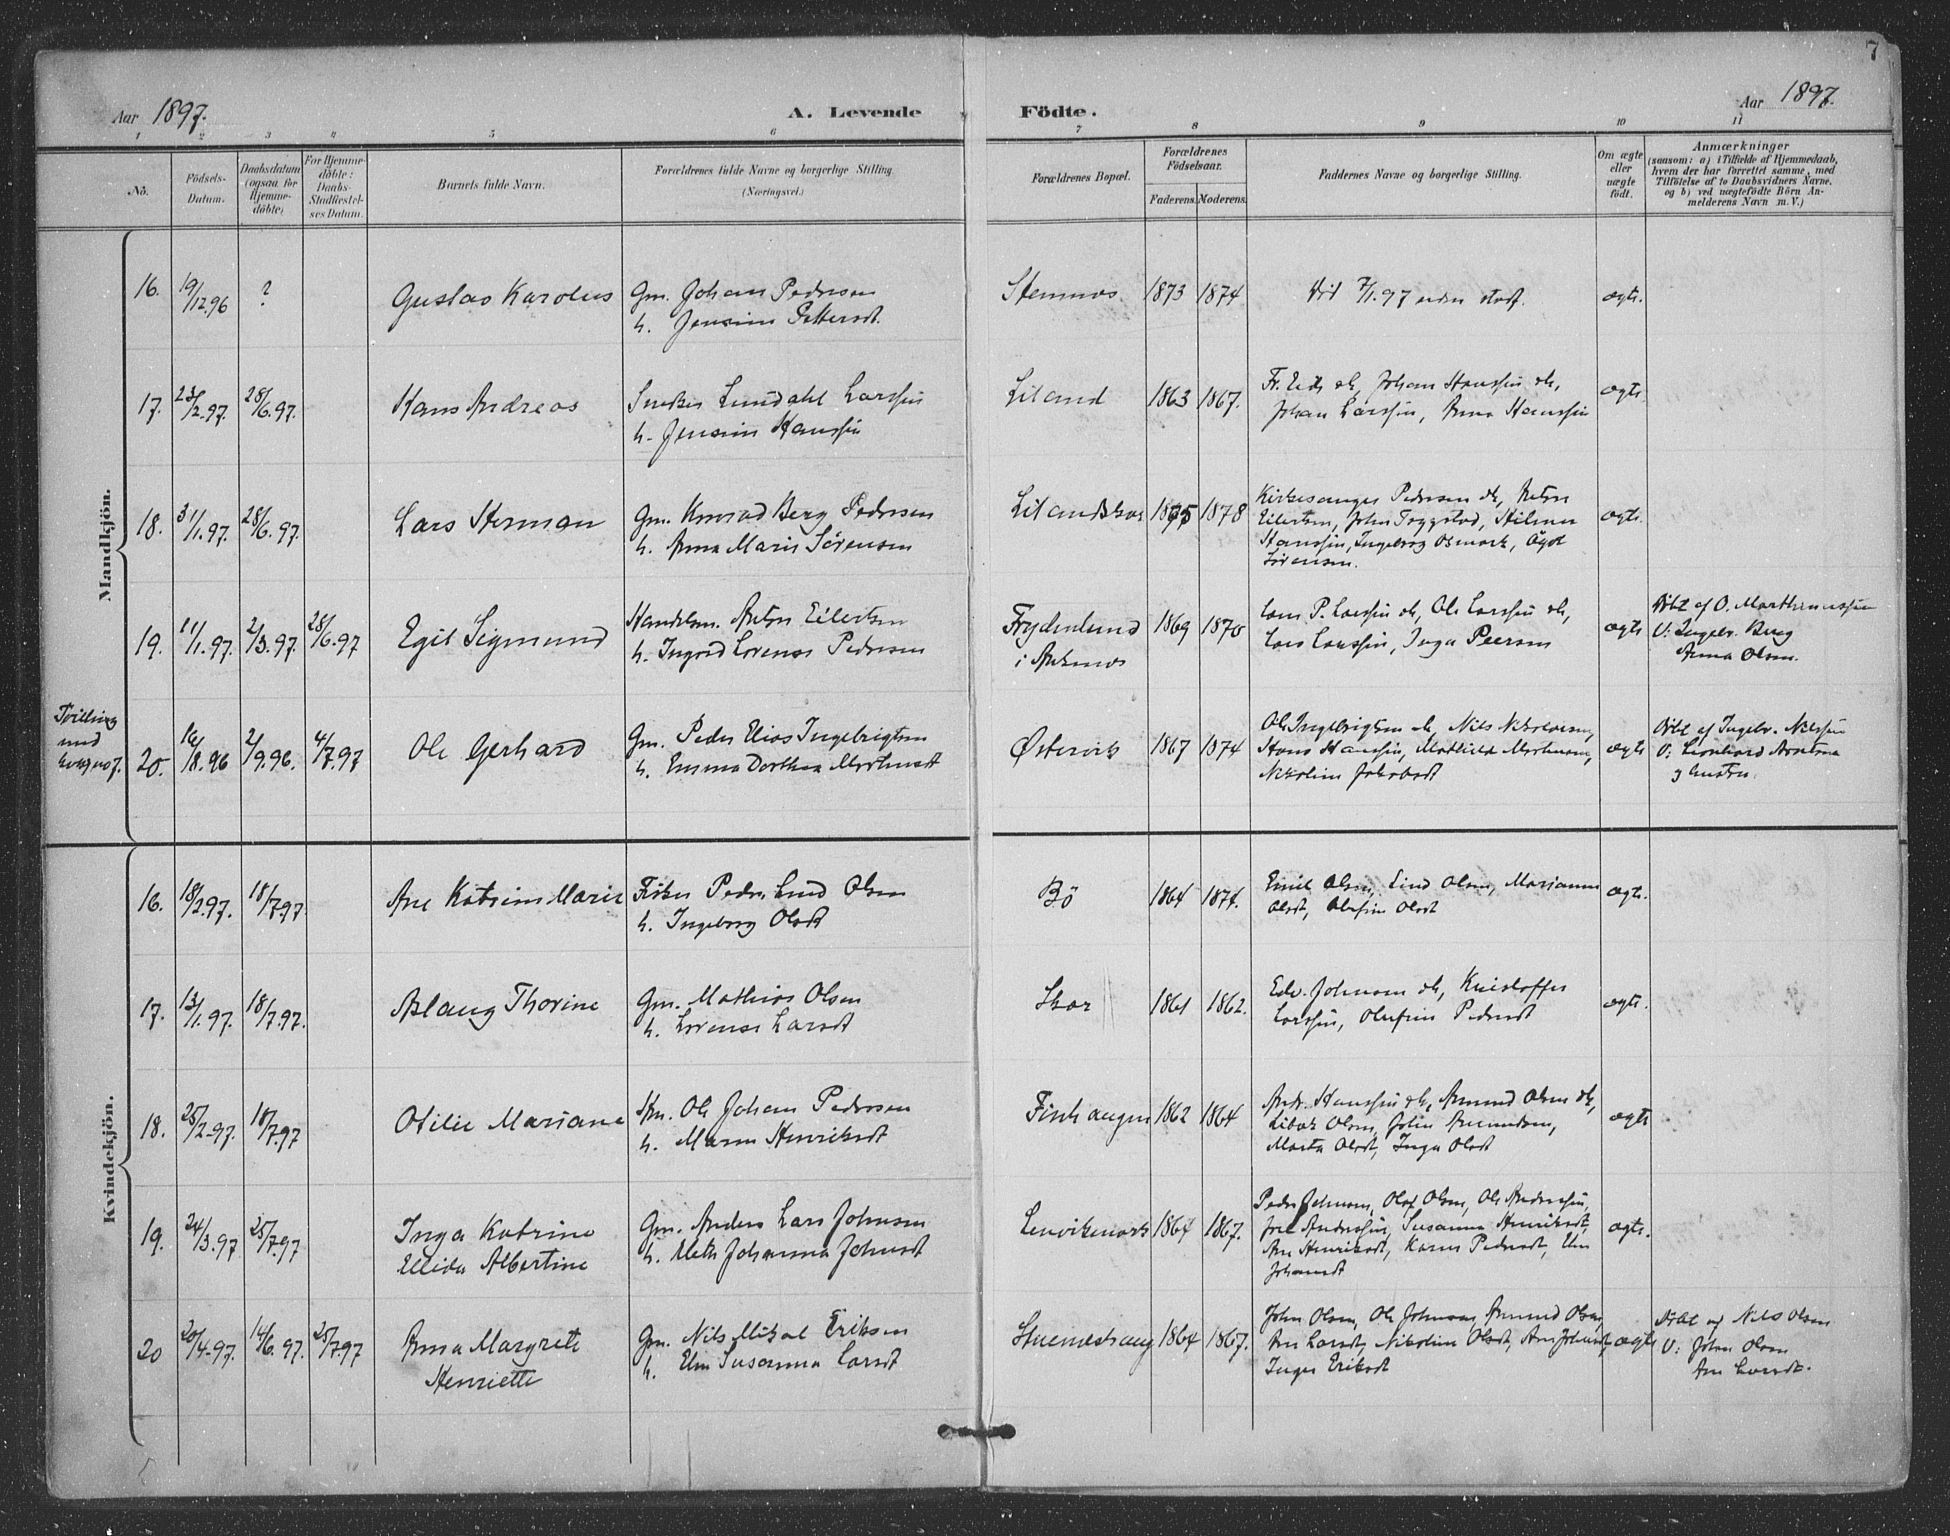 7
Aar 1897.
A. Levende
Födte.
Aar 1897.
1 2 3 4 5 6 7 8 9 10 11
No.
Födsels-
Datum.
Daabsdatum
(ogsaa for
Hjemme-
döbte)
For Hjemme-
döbte:
Daabs-
Stadfæstel-
ses Datum.
Barnets fulde Navn.
Forældrenes fulde Navne og borgerlige Stilling.
(Næringsvei.)
Forældrenes Bopæl.
Forældrenes
Födselsaar.
Faderens.
Moderens.
Faddernes Navne og borgerlige Stilling.
Om ægte
eller
uægte
födt.
Anmærkninger
(saasom: a) i Tilfælde af Hjemmedaab,
hvem der har forrettet samme, med
Tilföielse af to Daabsvidners Navne,
og b) ved uægtefödte Börn An-
melderens Navn m. V.)
Mandkjön.
16. 19/12.96 ? Gustav Karolus
Gm. Johan Pedersen
h. Jensine Pettersdt.
1873 1874
7/1.97 uden
ægte.
17. 23/2.97. 28/6.97. Hans Andreas
Lundahl Larssen
h. Jensine Hanssen
Liland 1863 1867.
Johan Hanssen
Johan Larssen, Anna Hanssen
ægte.
18. 31/1.97. 28/6.97. Lars Herman
Gm. Konrad Berg Pedersen
h. Anna Marie Sørensen
1875 1878
Kirkesanger Pedersen Anton
Eilertsen, John Hilmar
Hanssen, Ingeborg Osmark,
Sørensen.
ægte.
19. 11/1.97. 2/3.97. 28/6.97 Egil Sigmund
Handelsm. Anton Eilertsen
h. Ingrid Lorense Pedersen
Frydenlund
i
1869 1870
Lars P. Larssen Ole Larssen
Lars Larssen, Inga Peersen
ægte
Döbt af O. Marthinussen
V: Ingebr. Berg
Anna Olsen.
Tvilling
med
20. 16/8.96 2/9.96. 4/7.97 Ole Gerhard
Gm. Peder Elias Ingebrigtsen
h. Emma Dorthea
Østervik 1867 1874
Ole Ingebrigtsen Nils
Hans Hanssen, Mathilde
Nikoline
ægte
Döbt af Ingebr. Nilssen
V: Leonhard
Kvindekjön.
16. 18/2.97. 18/7.97. Ane Katrine Marie
Fisker Peder Lind Olsen
h. Ingeborg Olsdt
Bö 1864 1874.
Emil Olsen, Lind Olsen, Marianne
Olsdt, Olufine Olsdt
ægte.
17. 13/1.97. 18/7.97. Aslaug Thorine
Gm. Mathias Olsen
h. Lorense Larsdt
Skar 1861 1862.
Edv. Johnsen Kristoffer
Larssen, Olufine Pedersdt
ægte.
18. 25/2.97. 18/7.97 Otilie Mariane
Ole Johan Pedersen
h. Maren Henriksdt
1862 1864
Andr. Hanssen Amund Olsen
Olsen, John Amundsen,
Marta Olsdt, Inga Olsdt
ægte
19. 24/3.97 25/7.97 Inga Katrine
Elida Albertine
Gm. Anders Lars Johnsen
h. Johanna Johnsdt
Lenvikmark 1867 1867.
Peder Johnsen, Olaf Olsen, Ole Anderssen,
Joel Anderssen, Susanna Henriksdt,
Ane Henriksdt, Karen Pedersdt, Elen
Johansdt
ægte.
20 20/4.97. 14/6.97. 25/7.97 Anna Margrete
Henriette
Gm. Nils Mikal Eriksen
h. Elen Susanna Larsdt
1864 1867.
John Olsen, Ole Johnsen, Amund Olsen,
Ane Larsdt, Nikoline Olsdt,
Inger Eriksdt
ægte
Döbt af Nils Olsen
V: Johan Olsen
Ane Larsdt.